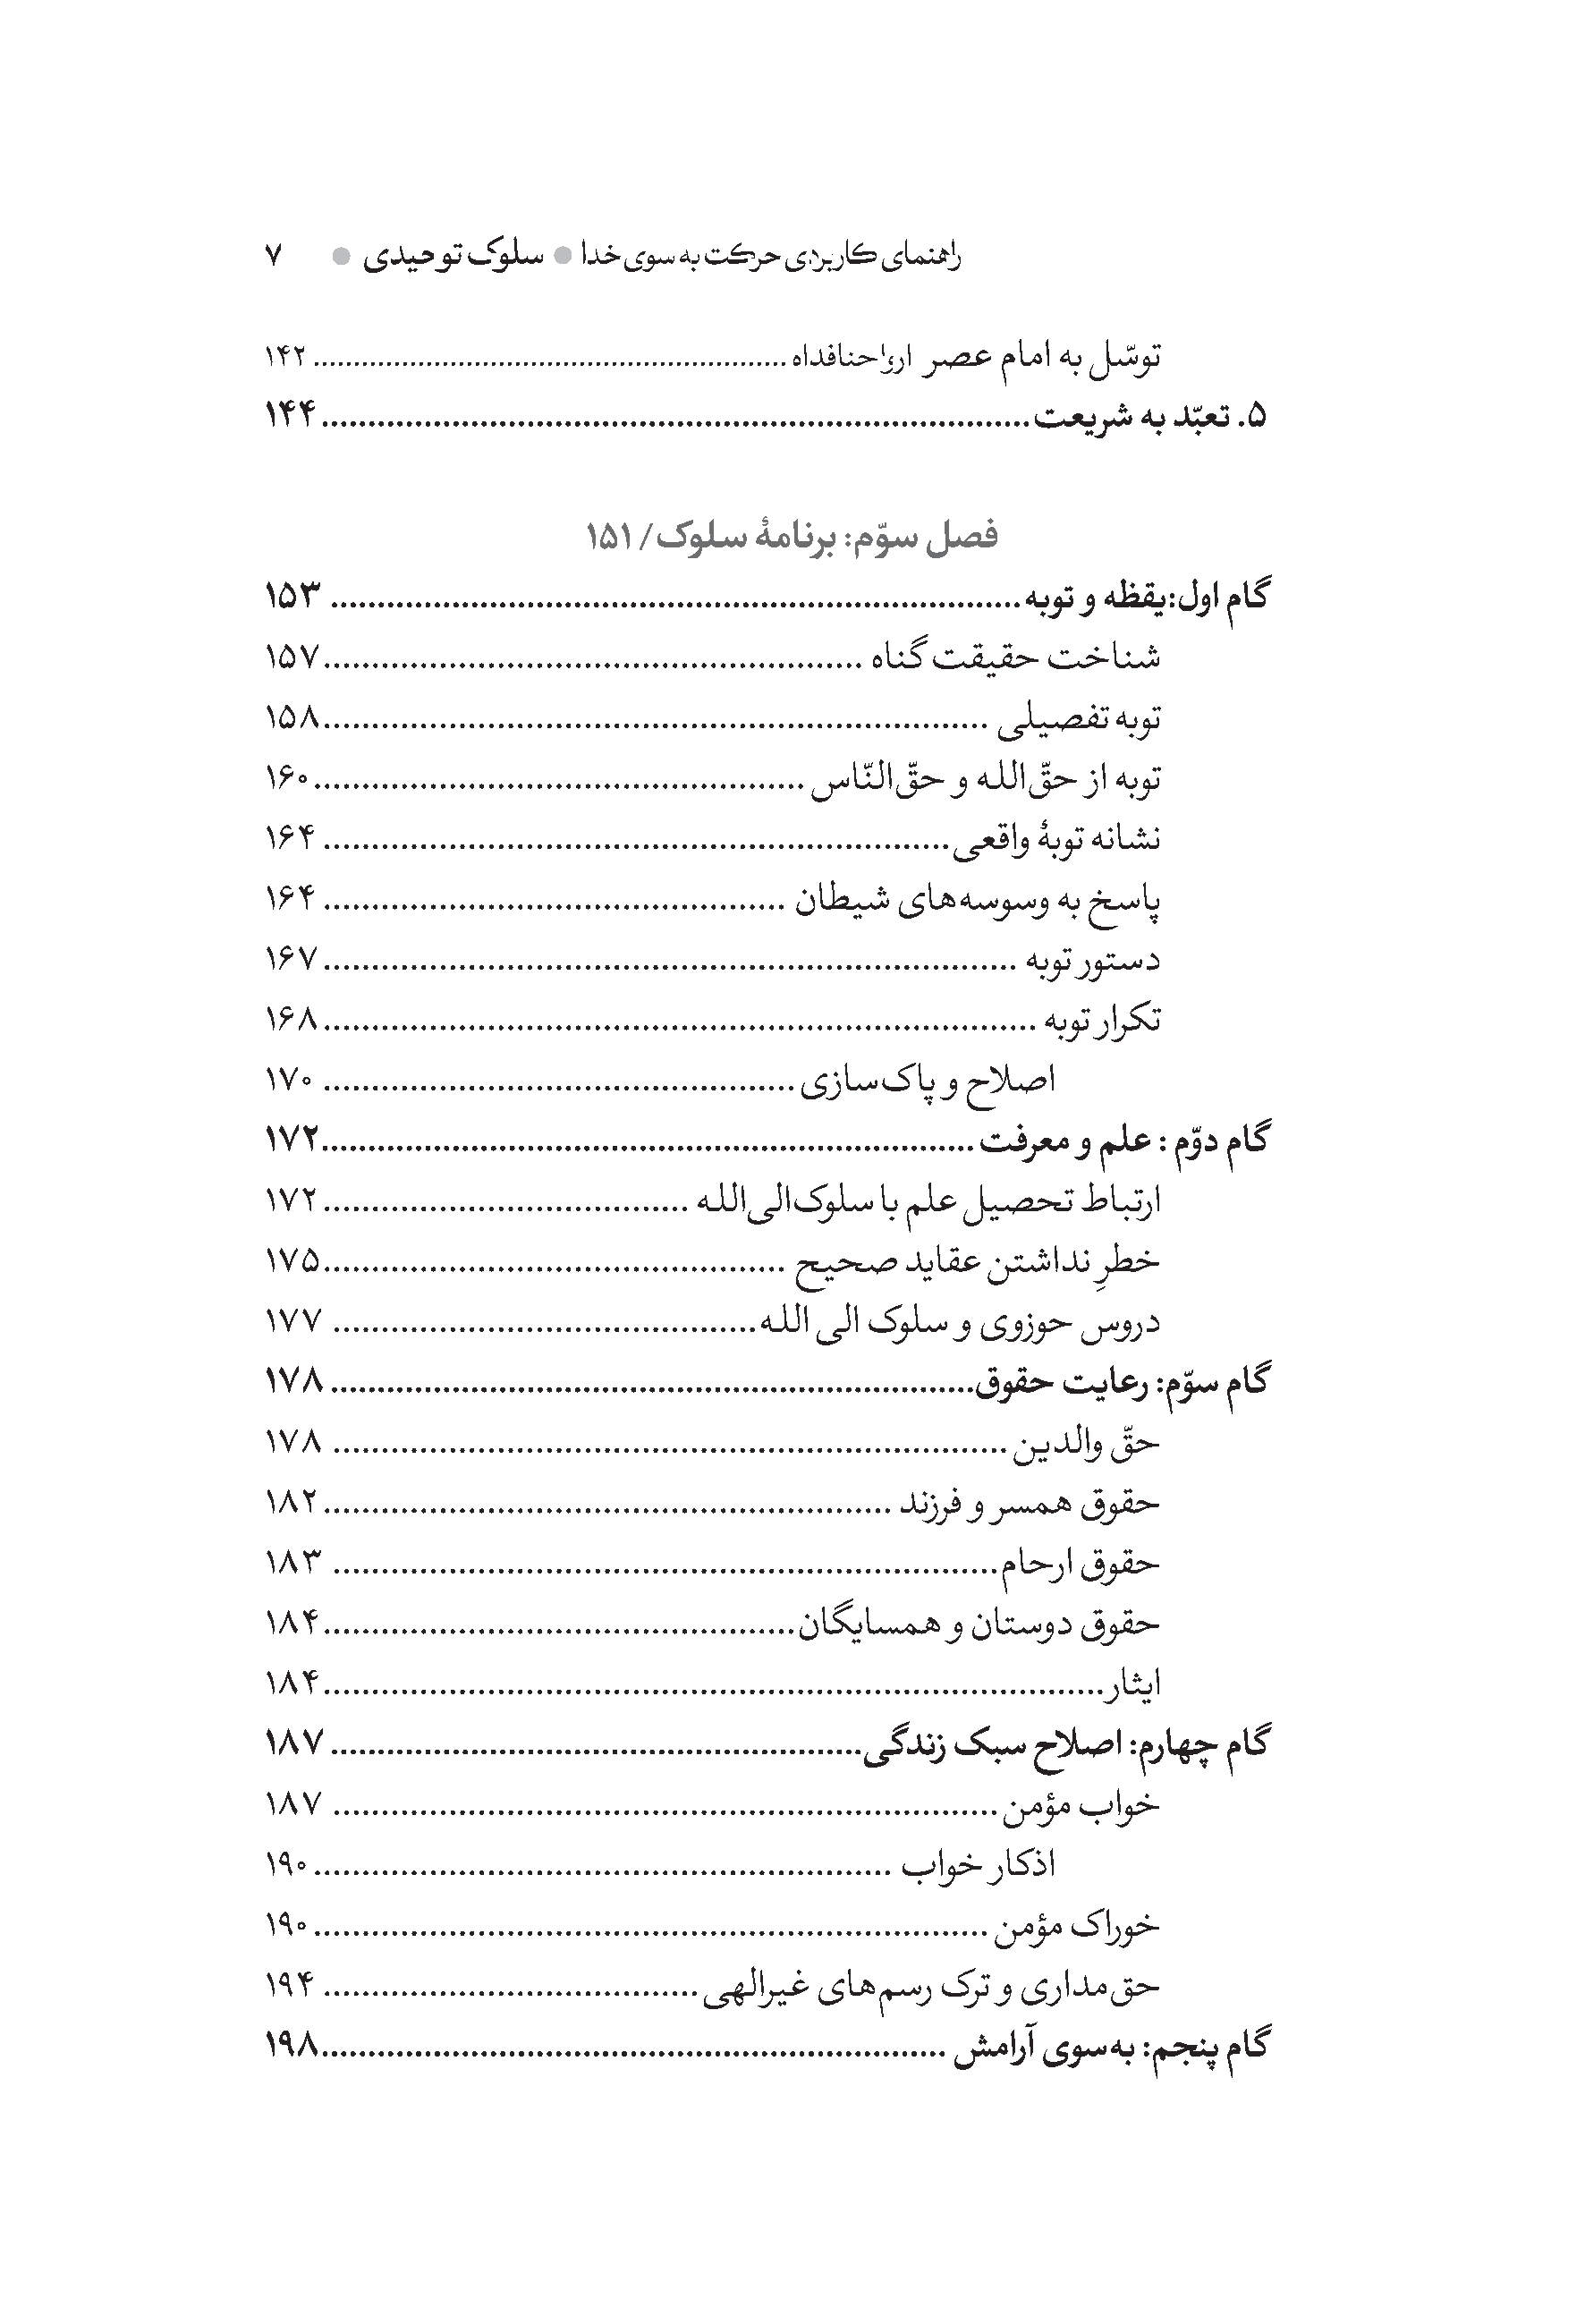 راهنمای کاربردی حرکت به سوی خدا ● سلوک توحیدی ● ۷
توسّل به امام عصر ارواحنافداه ........................................................... ۱۴۲
۵. تعبّد به شریعت ........................................................................... ۱۴۴
فصل سوّم: برنامهٔ سلوک/ ۱۵۱
گام اول:یقظه و توبه ........................................................................ ۱۵۳
شناخت حقیقت گناه ........................................................ ۱۵۷
توبه تفصیلی ..................................................................... ۱۵۸
توبه از حقّ‌الله و حقّ‌النّاس ................................................... ۱۶۰
نشانه توبهٔ واقعی ................................................................. ۱۶۴
پاسخ به وسوسه‌های شیطان ................................................ ۱۶۴
دستور توبه ........................................................................ ۱۶۷
تکرار توبه .......................................................................... ۱۶۸
اصلاح و پاک‌سازی ................................................. ۱۷۰
گام دوّم : علم و معرفت .................................................................... ۱۷۲
ارتباط تحصیل علم با سلوک‌الی‌الله ...................................... ۱۷۲
خطرِ نداشتن عقاید صحیح ................................................ ۱۷۵
دروس حوزوی و سلوک الی الله ............................................ ۱۷۷
گام سوّم: رعایت حقوق .................................................................... ۱۷۸
حقّ والدین ...................................................................... ۱۷۸
حقوق همسر و فرزند ........................................................... ۱۸۲
حقوق ارحام ..................................................................... ۱۸۳
حقوق دوستان و همسایگان ................................................. ۱۸۴
ایثار ................................................................................. ۱۸۴
گام چهارم: اصلاح سبک زندگی ........................................................ ۱۸۷
خواب مؤمن ..................................................................... ۱۸۷
اذکار خواب ............................................................ ۱۹۰
خوراک مؤمن ...................................................................... ۱۹۰
حق‌مداری و ترک رسم‌های غیرالهی ....................................... ۱۹۴
گام پنجم: به‌سوی آرامش .................................................................. ۱۹۸